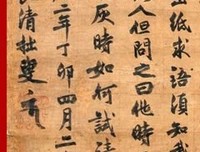 出紙求語須知我
人但問之曰他時
灰時如何試請
二年丁卯四月二
清拙叟